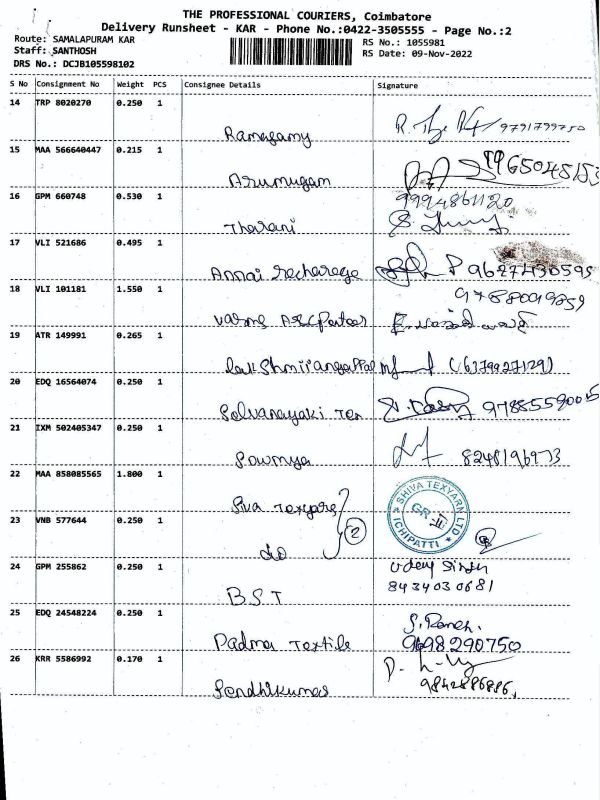 THE PROFESSIONAL COURIERS, Coimbatore
Delivery Runsheet - KAR - Phone No.:0422-3505555 - Page No.:2
Route: SAMALAPURAM KAR
RS No.: 1055981
Staff: SANTHOSH
RS Date: 09-Nov-2022
DRS No.: DCJB105598102
S No Consignment No Weight PCS Consignee Details Signature
14 TRP 8020270 0.250 1
Ramasamy 9791799750
15 MAA 566640447 0.215 1
Arumugam
16 GPM 660748 0.530 1 9994861120
Tharani
17 VLI 521686 0.495 1
Annai recharege 9627430595
18 VLI 101181 1.550 1 9788099859
19 ATR 149991 0.265 1
(6379927129)
20 EDQ 16564074 0.250 1
Selvanayaki Tex
21 IXM 502405347 0.250 1
Sowmya 8248196933
22 MAA 858085565 1.800 1
Siva Texyarn SHIVA TEXYARN LTD
2 ICHIPATTI
23 VNB 577644 0.250 1
do
24 GPM 255862 0.250 1 Uday Singh
B.S.T 8434030681
25 EDQ 24548224 0.250 1
Padma Textile 9698290750
26 KRR 5586992 0.170 1
Sendhilkumar 9842886886